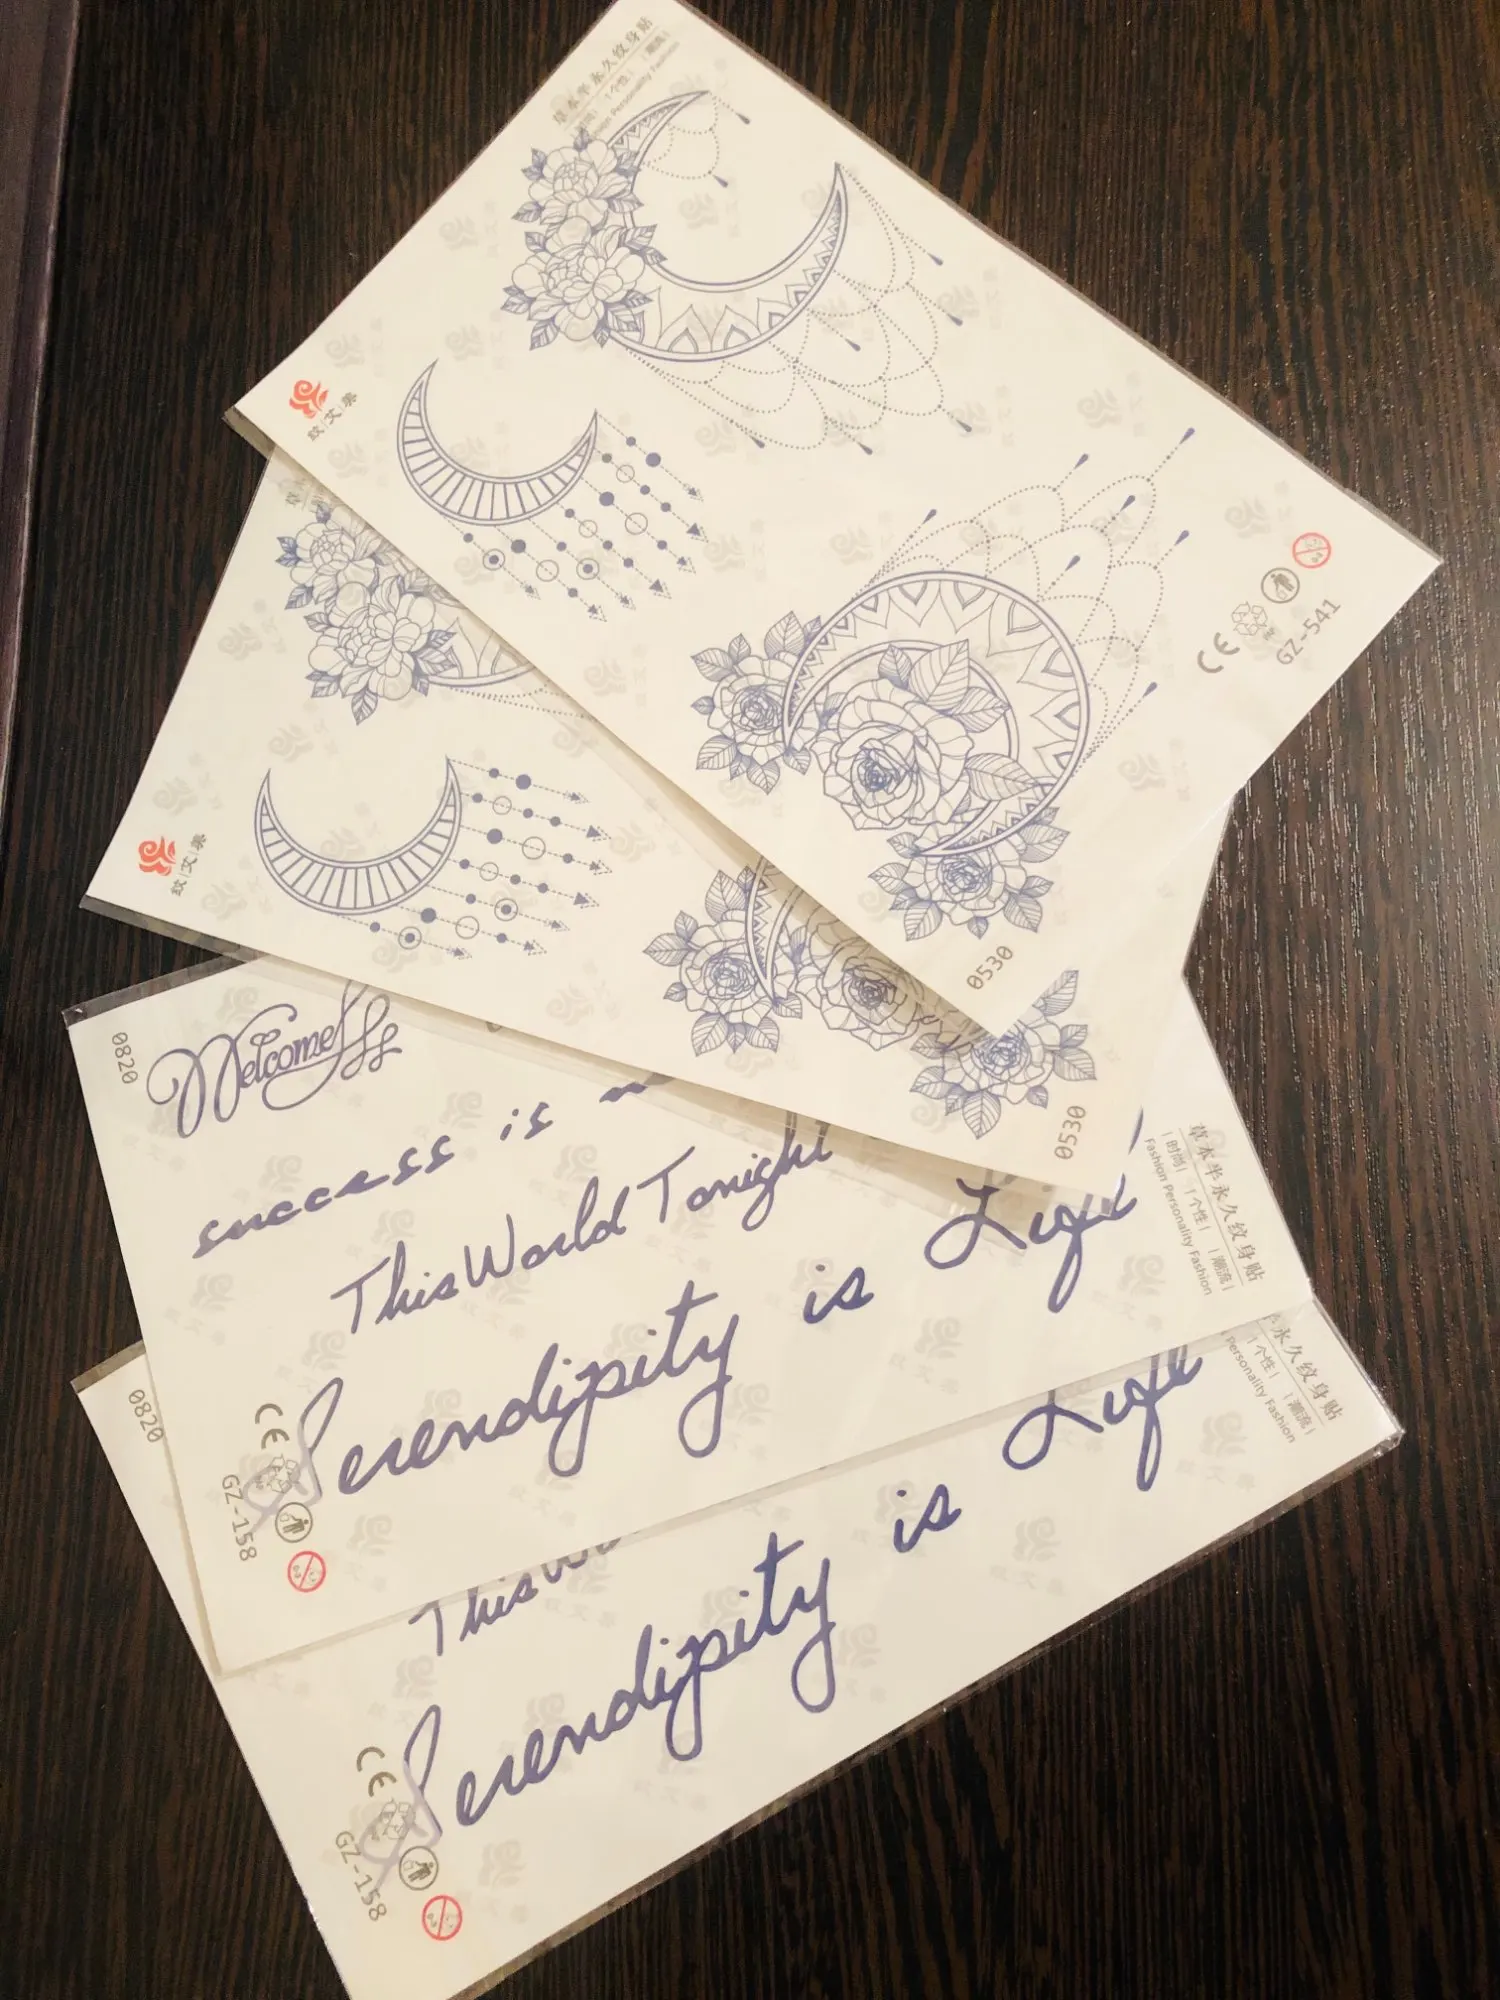 草本半永久纹身贴
|个性| |潮流|
Personality Fashion
纹|艾|美
CE
GZ-541
0530
纹|艾|美
0530
0820
Welcome
success is
This World Tonight
Serendipity is Life
草本半永久纹身贴
|时尚| |个性| |潮流|
Fashion Personality Fashion
CE
GZ-158
0820
永久纹身贴
|个性| |潮流|
Personality Fashion
This Wor
Serendipity is Life
CE
GZ-158